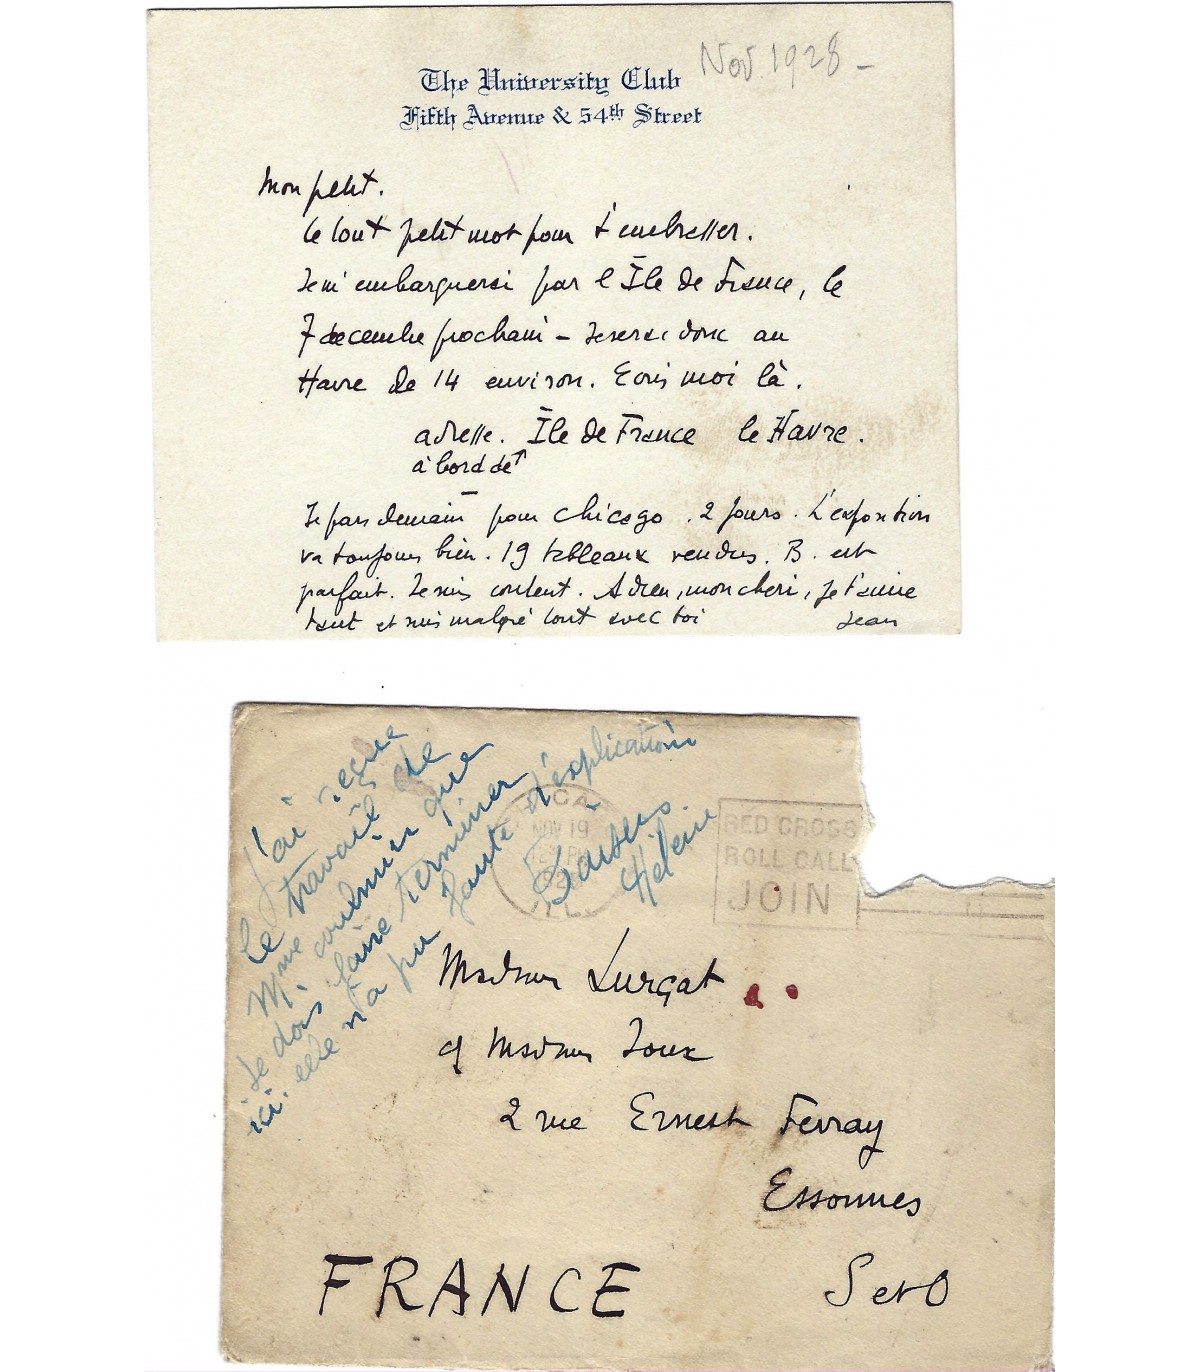 Nov. 1928 -
The University Club
Fifth Avenue & 54th Street
Mon petit.
Ce tout petit mot pour t'embrasser.
Je m'embarquerai par l Île de France, le
7 decembre prochain - Je serai donc au
Havre le 14 environ. Ecris moi là.
adresse. Île de France le Havre.
à bord de ↑
Je pars demain pour Chicago. 2 jours. L'exposition
va toujours bien. 19 tableaux vendus. B. est
parfait. Je suis content. Adieu, mon cheri, Je t'aime
tant et suis malgré tout avec toi Jean
J'ai
le travail de
Mme
Je dois faire terminer
ici. elle n'a pu faute d'explications
Hélène
NOV 19
ILL.
RED CROSS
ROLL CALL
JOIN
Madame Lurçat
c/ Madame Joux
2 rue Ernest Fevray
Essonnes
S et O
FRANCE